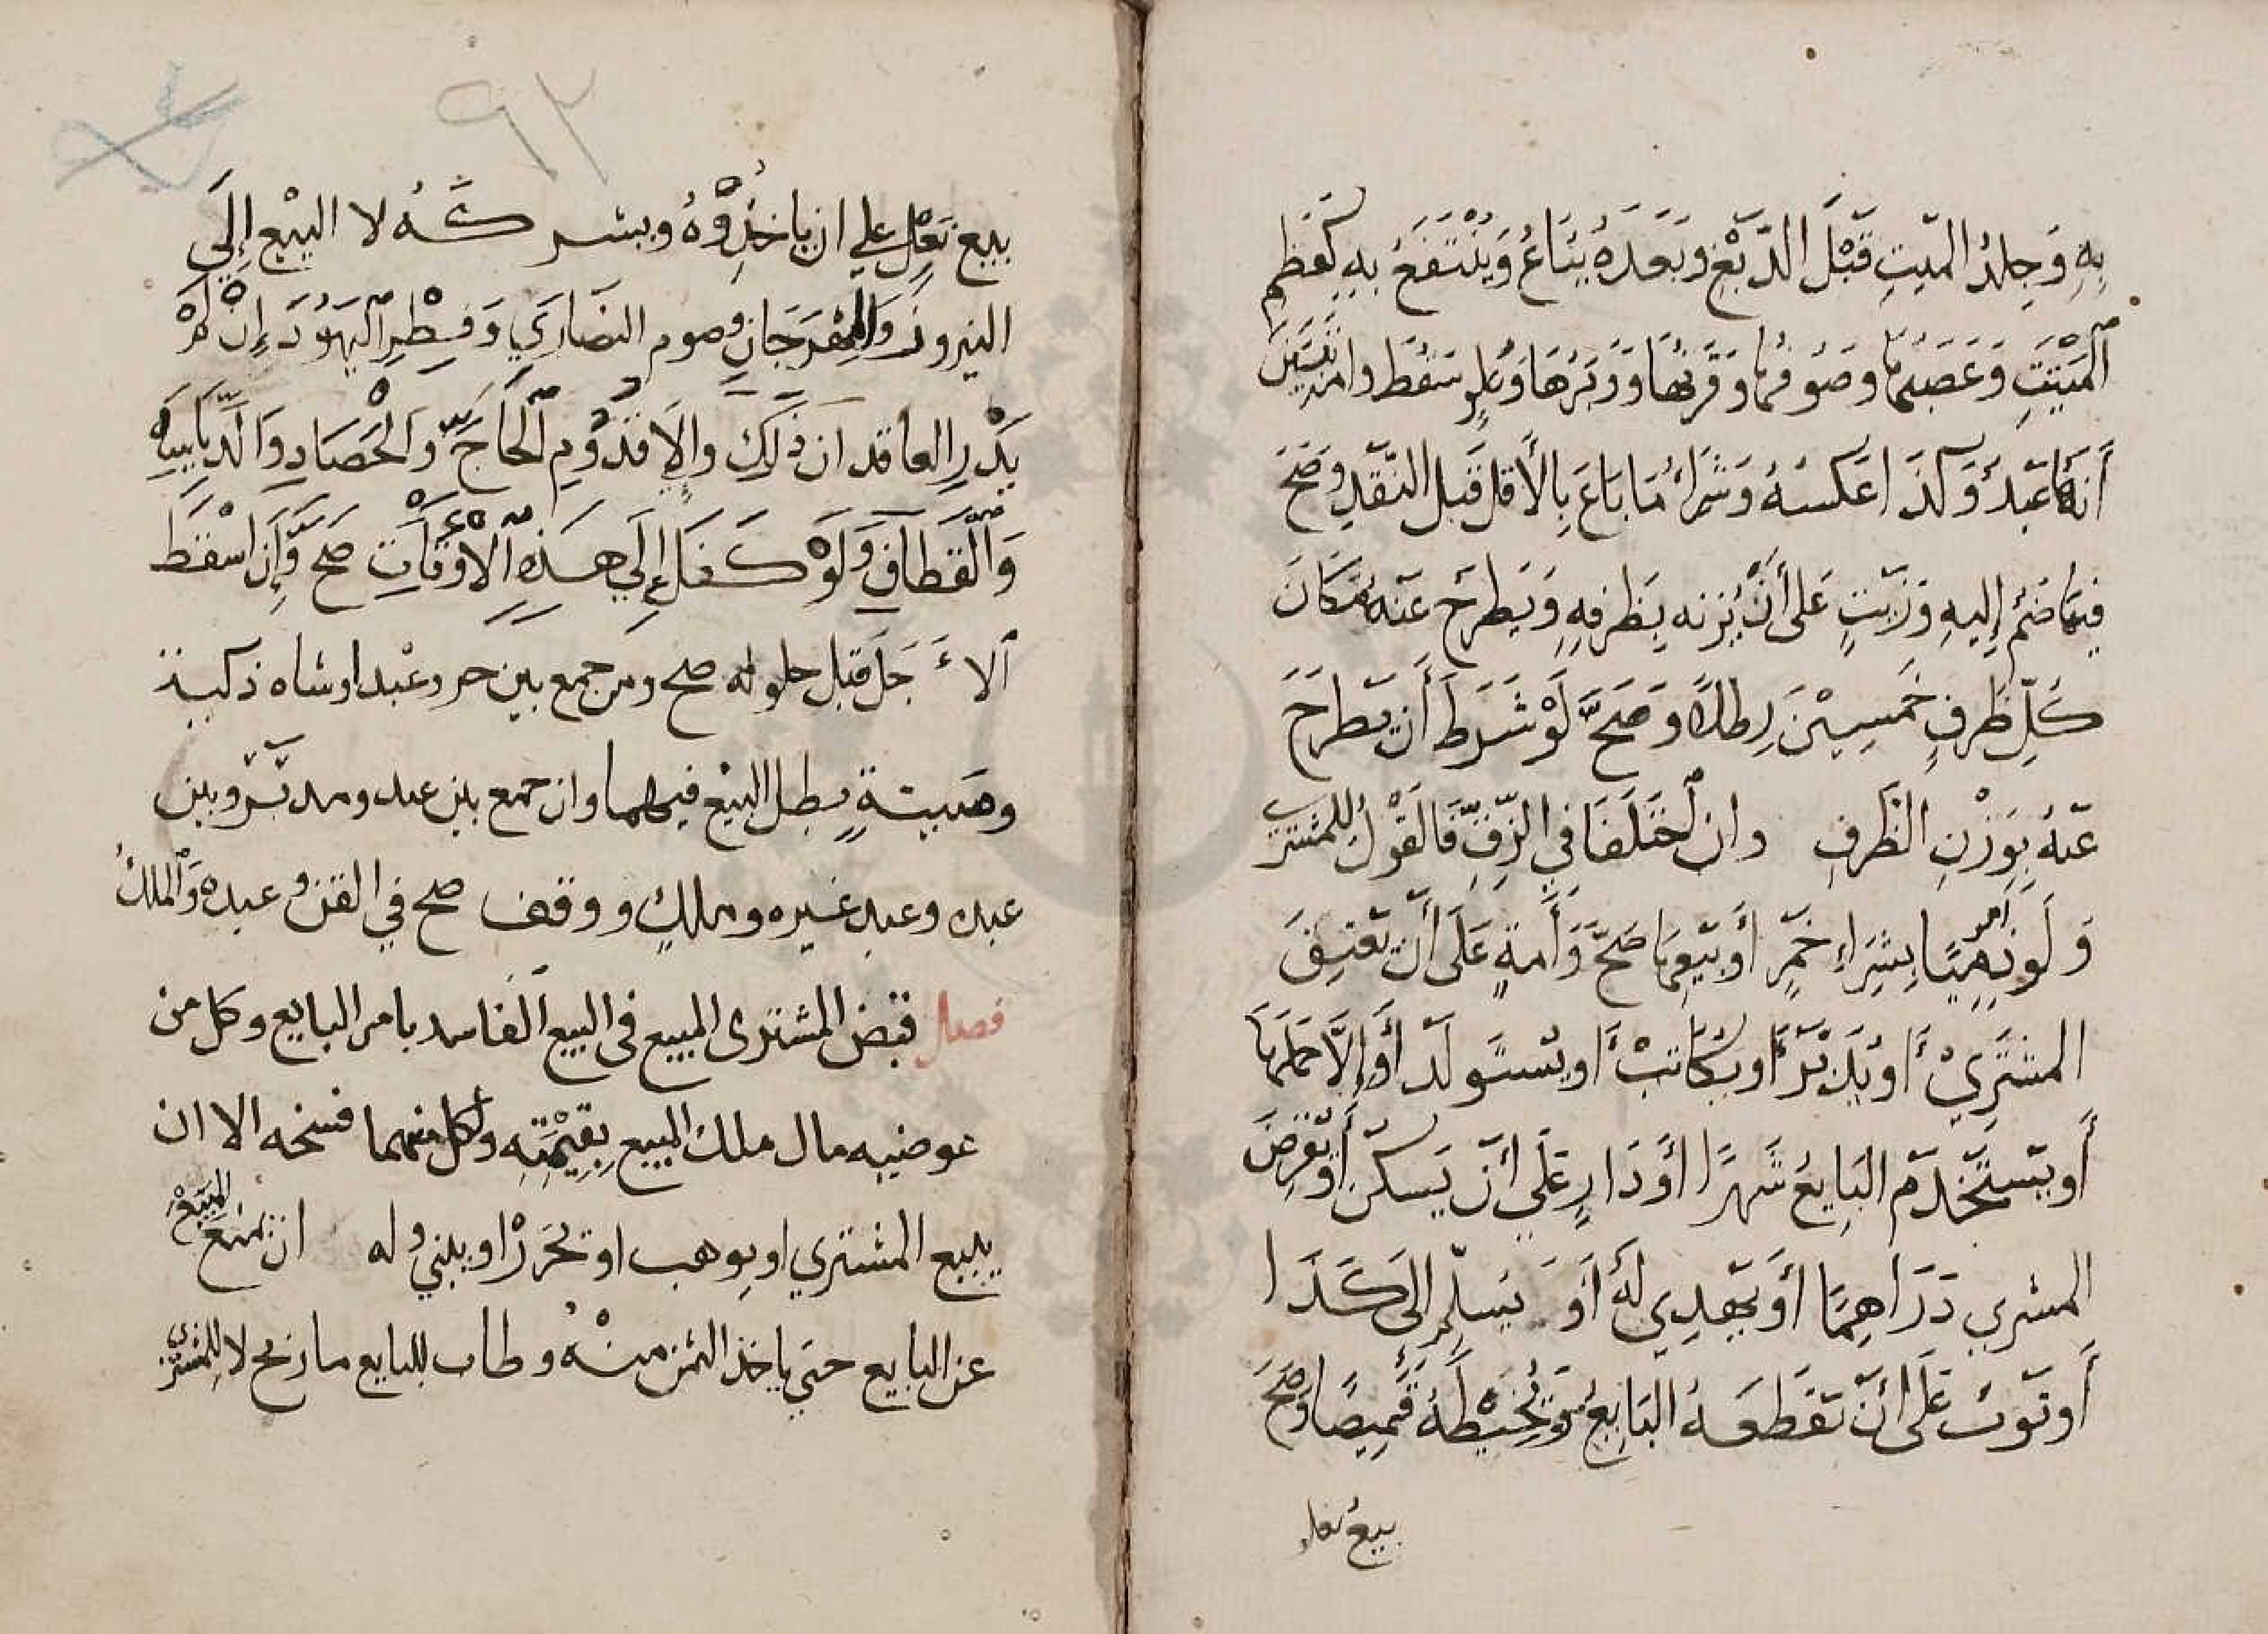 بِهِ وَجِلدُ المَيّتِ قَبْلَ الدَّبْغِ وبَعَدَهُ يُبَاعُ وَيُنْتَفَعُ بِهِ كَعَظمِ
المَيْتَتِ وَعَصَبِهَا وصُوفِهَا وَقَرنِهَا وَوَبَرِهَا وَعُلوٍ سَقَطَ وامَةٍ تَبَيَّنَ
أَنهُ عَبدٌ وَكَذَا عَكسُهُ وَشِرَاُ مَا بَاعَ بِالأَقل قَبل النَّقدِ وَصَحَّ
فِيمَا ضُمَّ إِليهِ وَزَيتٍ عَلى أَنْ يَزنه بِظرفِهِ وَيَطرحَ عَنهُ مَكَانَ
كُلِّ ظَرفٍ خَمسِينَ رِطلًا وَصَحَّ لَوْ شَرَطَ أَن يَطرَحَ
عَنهُ بِوَزْنِ الظَّرفِ وان اختَلَفَا فِي الزّقّ فَالقَوْلُ لِلمُشتَرِي
وَلَو أَمَرَ ذِمّيًّا بِشِرَاءِ خَمرٍ أَو بَيعِهَا صَحَّ وَأَمةٍ عَلَى أَن تعْتِقَ
المشتَرِيْ أَو يُدَبّرَ أَو يكَاتبْ أَو يسْتَولَد أَو إِلَّا حَملَهَا
أَو يَستَخدَم البَايِعُ شَهرًا أَوْ دَارٍ عَلَي أَن يَسكُنَ أَو يُقرِضَ
المشري دَرَاهِمًا أَو يَهدِي لَهُ أَوَ يَسلِّمِ الَى كَذَا
أَو ثَوبٍ عَلَى أَن يَقطَعَهُ البَايِعُ وَيُخِيْطَهُ قَمِيصًا وَصَحَّ
بيعُ نعل
بيعُ نَعْلٍ علي ان يا خُذوْهُ ويشركَهُ لا البيْع إِلَى
النيروز وَالمهْرَجَانِ وصوم النصَارَي وَفِطْرِ اليَهَوُدَ إِنْ لَمْ
يَدْرِ العاقدان ذَلِكَ والِا قدُوْمِ الحَاجَّ وَالْحَصَادِ وَالدِّيَاسِ
وَالقطَافِ وَلَوْ كَفلَ إِلَي هَذِهِ الاوْقَاتِ صَحَ وَإِن اسْقَطَ
الاَجَل قبل حلوله صح ومن جمع بين حر وعَبْد او شاه ذكيةٍ
ومَيتةٍ بطل البيع فيهما وان جمع بين عبد ومدبَّر وبين
عبده وعبدِ غيره وملكٍ ووقف صح في القن وعبده وَالملكُ
فصل قبض المشترى المبيع فى البيع الفاسد بامر البايع وكل من
عوضيه مال ملك المبيع بِقِيْمَتِهِ ولكل منهما فسخه الا ان
يبيع المشتري او يوهب او تحرر او يبني وله ان يمنع المَبيعْ
عن البايع حتي ياخذ الثمن منْهُ وطاب للبايع ما ربح لا لِلمشتري
٩٢